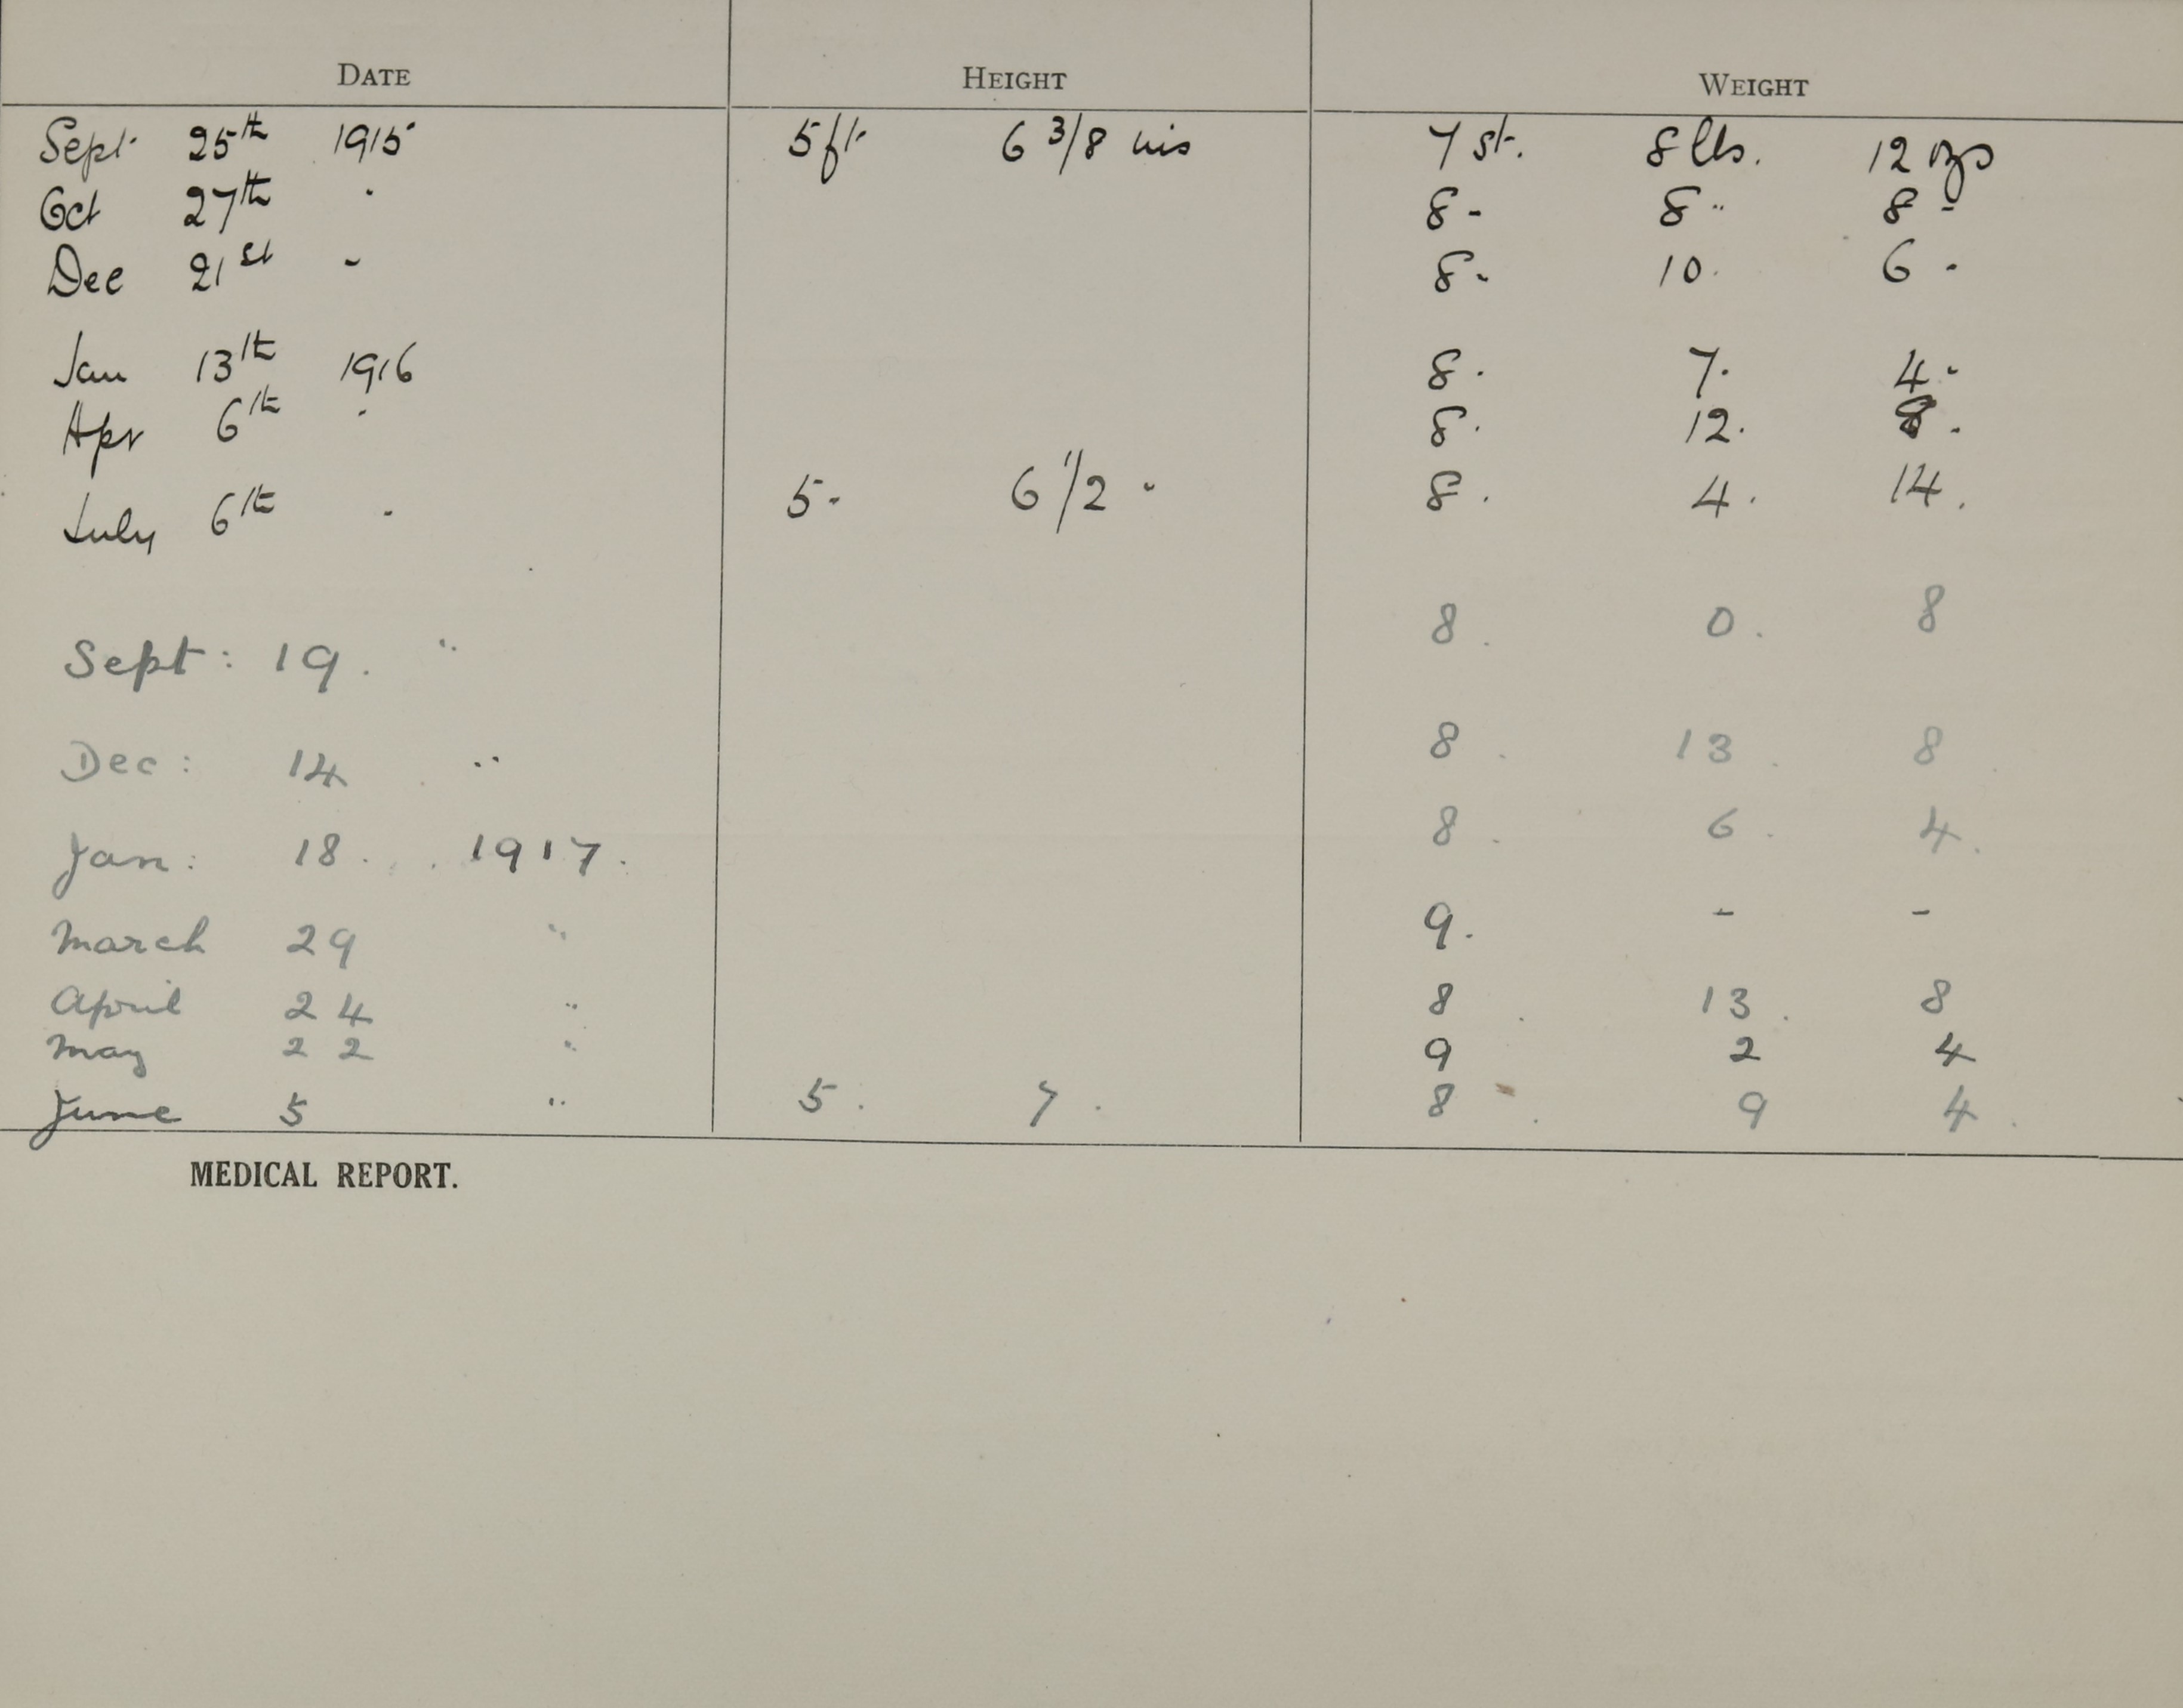 DATE HEIGHT WEIGHT
Sept. 25th 1915 5ft. 6 3/8 ins 7 st. 8 lbs. 12 ozs
Oct 27th " 8 - 8 " 8 -
Dec 21st - 8 - 10. 6 -
Jan 13th 1916 8. 7. 4 -
Apr 6th - 8. 12. .
July 6th - 5 - 6 1/2 " 8. 4. 14.
Sept: 19. " 8. 0. 8
Dec: 14 " 8. 13. 8.
Jan: 18. 1917. 8. 6. 4.
March 29 " 9. - -
April 24 " 8. 13. 8
May 22 " 9 2 4
June 5 " 5. 7. 8. 9 4.
MEDICAL REPORT.